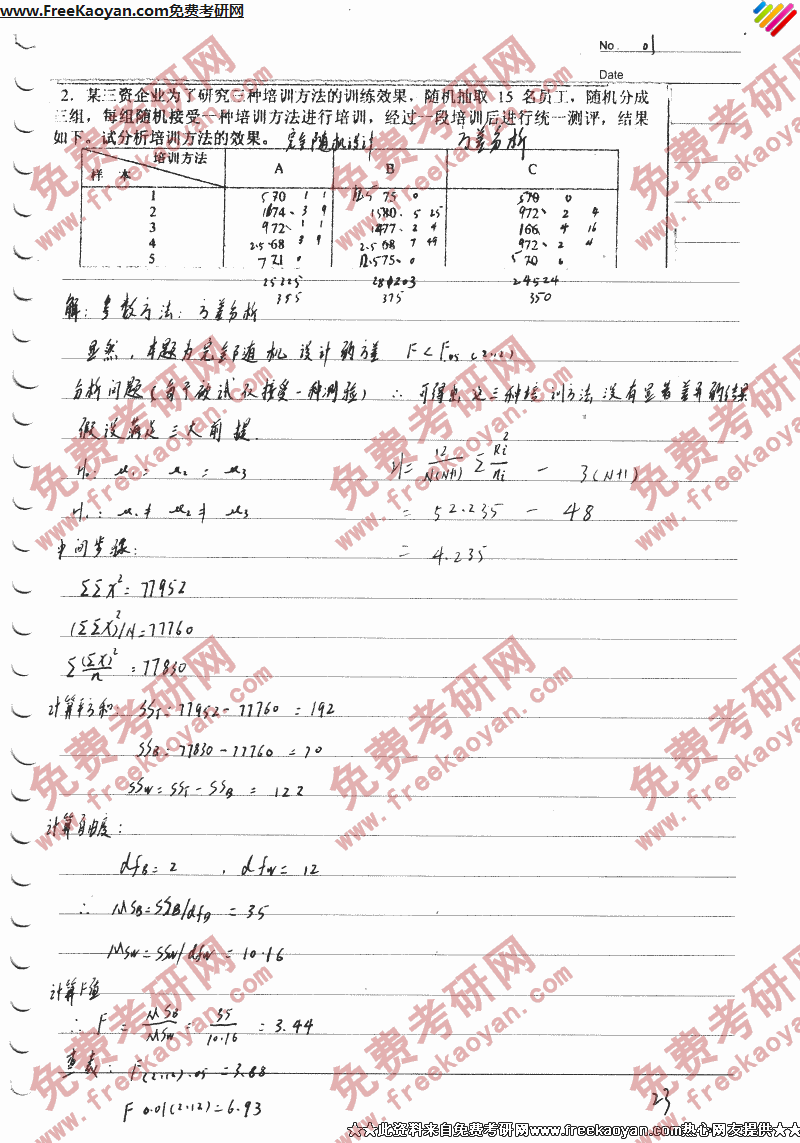 www.FreeKaoyan.com免费考研网
No. 01
Date
2. 某三资企业为了研究三种培训方法的训练效果,随机抽取 15 名员工,随机分成
三组,每组随机接受一种培训方法进行培训,经过一段培训后进行统一测评,结果
如下。试分析培训方法的效果。 完全随机设计 方差分析
培训方法
样 本 A B C
1 5 70 1 1 11.5 75 0 5 70 0
2 74 3 9 15 80 5 25 9 72 2 4
3 9 72 1 1 14 77 2 4 1 66 4 16
4 2.5 68 3 9 2.5 68 7 49 9 72 2 4
5 7 71 0 11.5 75 0 5 70 0
25225 28203 24524
355 375 350
解:参数方法:方差分析
显然,本题为完全随机设计的方差 F < F.05 (2,12)
分析问题(每个被试仅接受一种测验) ∴ 可得出这三种培训方法没有显著差异的结果
假设满足三大前提.
H0: μ1 = μ2 = μ3 H = 12/N(N+1) Σ Ri²/ni - 3(N+1)
H1: μ1 ≠ μ2 ≠ μ3 = 52.235 - 48
中间步骤: = 4.235
ΣΣX² = 77952
(ΣΣX)²/N = 77760
Σ (ΣX)²/n = 77830
计算平方和: SST = 77952 - 77760 = 192
SSB = 77830 - 77760 = 70
SSW = SST - SSB = 122
计算自由度:
dfB = 2 , dfW = 12
∴ MSB = SSB/dfB = 35
MSW = SSW/dfW = 10.16
计算F值
∴ F = MSB/MSW = 35/10.16 = 3.44
查表: F(2,12).05 = 3.88
F 0.01(2,12) = 6.93
23
★★此资料来自免费考研网 www.freekaoyan.com热心网友提供★★
免费考研网
www.freekaoyan.com